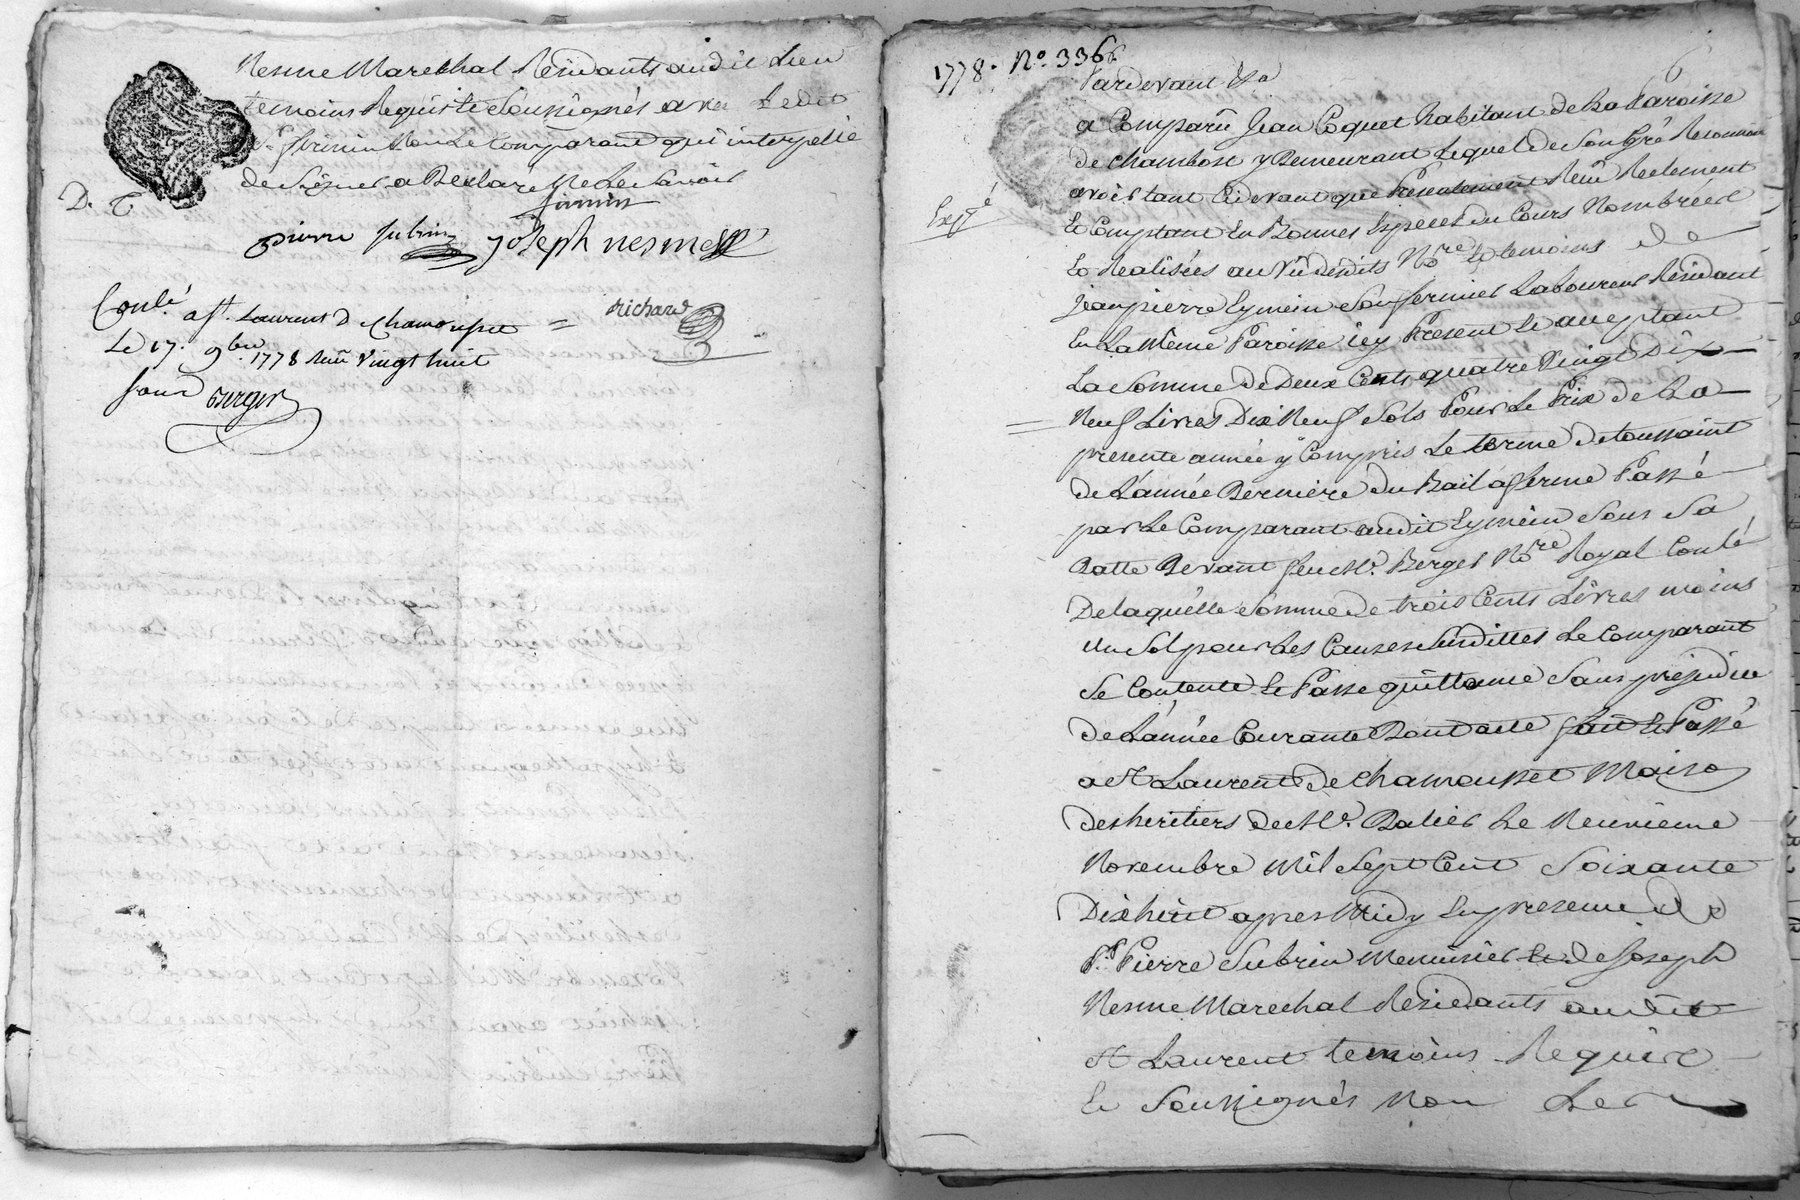 Nesme Marechal Residants audit Lieu
temoins Requis et Soussignés avec Ledit
Sr. firmin Non Le Comparant qui interpellé
de Signer a Declaré Ne Le Savoir
D. T.
firmin
pierre subrin joseph nesme
richard
Conlé. a St. Laurent D Chamousset =
Le 17. 9bre. 1778 Reçu Vingt huit
sous Berger
1778. No. 336
6
Pardevant &a
a Comparû Jean Coquet habitant de La Paroisse
de Chambost y Demeurant Lequel de Son Gré Reconnu
avoir tant Cidevant que Présentement Reçu Réelement
Expé
Et Comptant En Bonnes Especes du Cours Nombrées
Et Realisées au Vû desdits Nore. Et temoins de
Jean pierre Eymein Son fermier Laboureur Résidant
En La Même Paroisse icy Présent Et acceptant
La Somme de Deux Cents quatre Vingt Dix
Neuf Livres Dix Neuf Sols Pour Le Prix de La
presente année y Compris Le terme de toussaint
de L'année Derniere du Bail a ferme Passé
par Le Comparant audit Eymein Sous Sa
Datte Devant feu Me. Berger Nore Royal Conlé
De laquelle Somme de trois Cents Livres moins
Un Sol pour Les Causes Susdittes Le Comparant
Se Contente Et Passe quittance Sans préjudice
de L'année Courante Dont acte fait Et Passé
a St Laurent de Chamousset Maison
des heritiers de Me. Dalier Le Neuvieme
Novembre Mil Sept Cent Soixante
Dix huit apres Midy En presence de
Sr. Pierre Subrin Menuisier Et de Joseph
Nesme Marechal Residants audit
St Laurent temoins Requis
Et Soussignés Non Le